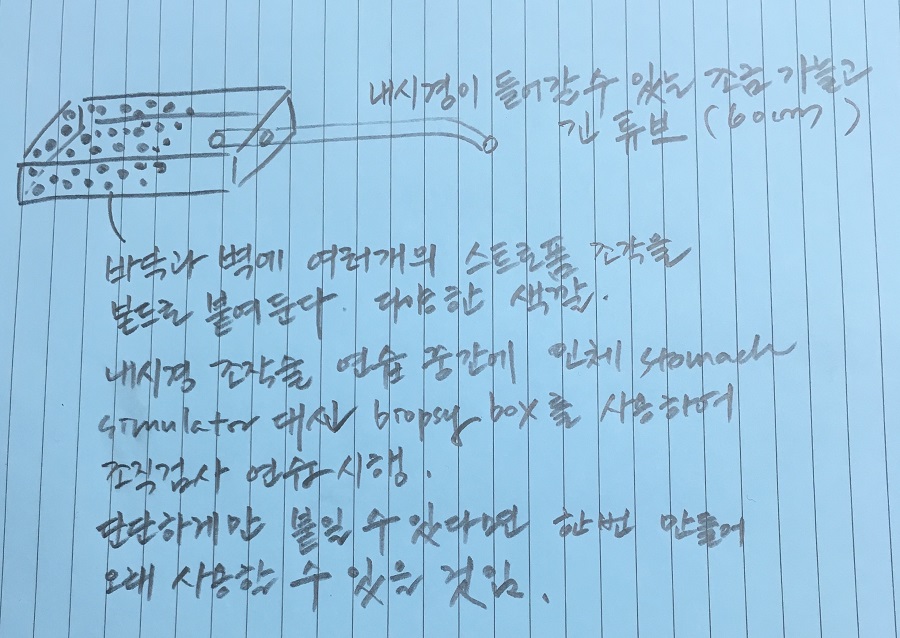 내시경이 들어갈 수 있는 조금 가늘고
긴 튜브 (60cm)
바닥과 벽에 여러개의 스트로폼 조각을
본드로 붙여둔다. 다양한 색깔.
내시경 조작술 연습 중간에 인체 stomach
simulator 대신 biopsy box를 사용하여
조직검사 연습 시행.
단단하게만 붙일 수 있다면 한번 만들어
오래 사용할 수 있을 것임.